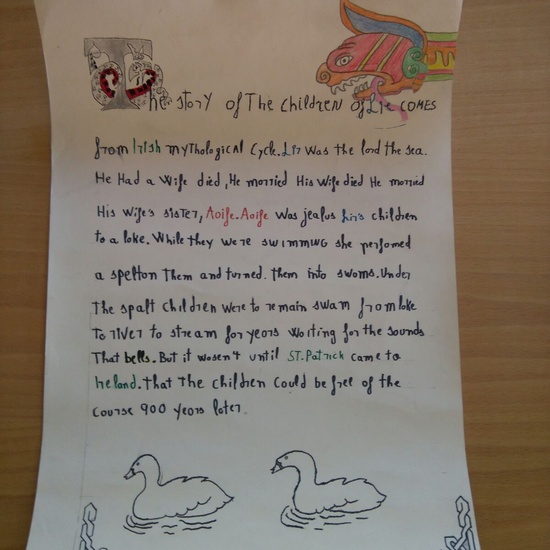 The story of The children of Lir comes
from Irish mythological Cycle. Lir was the lord the sea.
He Had a wife died, He morried His wife died He morried
His wife's sister, Aoife. Aoife was jealus Lirs children
to a lake. While they were swimming she perfomed
a spellon Them and turned. them into swams. Under
The spalt children were to remain swam from lake
To river to stream for years waiting for the sounds
That bells. But it wosen't until ST. Patrick came to
Ireland. that The children could be free of the
course 900 years later.